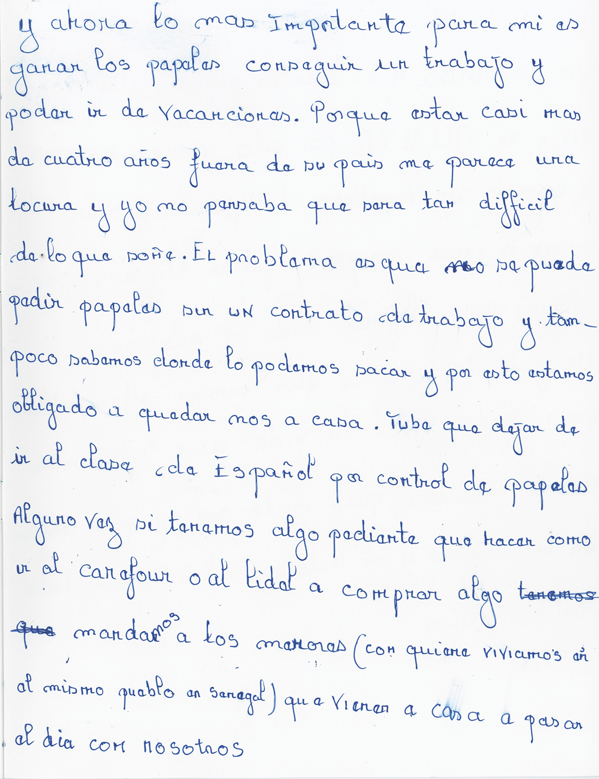 y ahora lo mas Importante para mi es
ganar los papeles conseguir un trabajo y
poder ir de vacanciones. Porque estar casi mas
de cuatro años fuera de su pais me parece una
locura y yo no pensaba que sera tan difficil
de lo que soñe. EL problema es que no se puede
pedir papeles sin un contrato de trabajo y tam-
poco sabemos donde lo podemos sacar y por esto estamos
obligado a quedar nos a casa. Tube que dejar de
ir al clase de Español por control de papeles
Alguno vez si tenemos algo pediente que hacer como
ir al carefour o al lidal a comprar algo tenemos
que mandamos a los menores (con quiene viviamos en
al mismo pueblo en senegal) que vienen a casa a pasar
al dia con nosotros